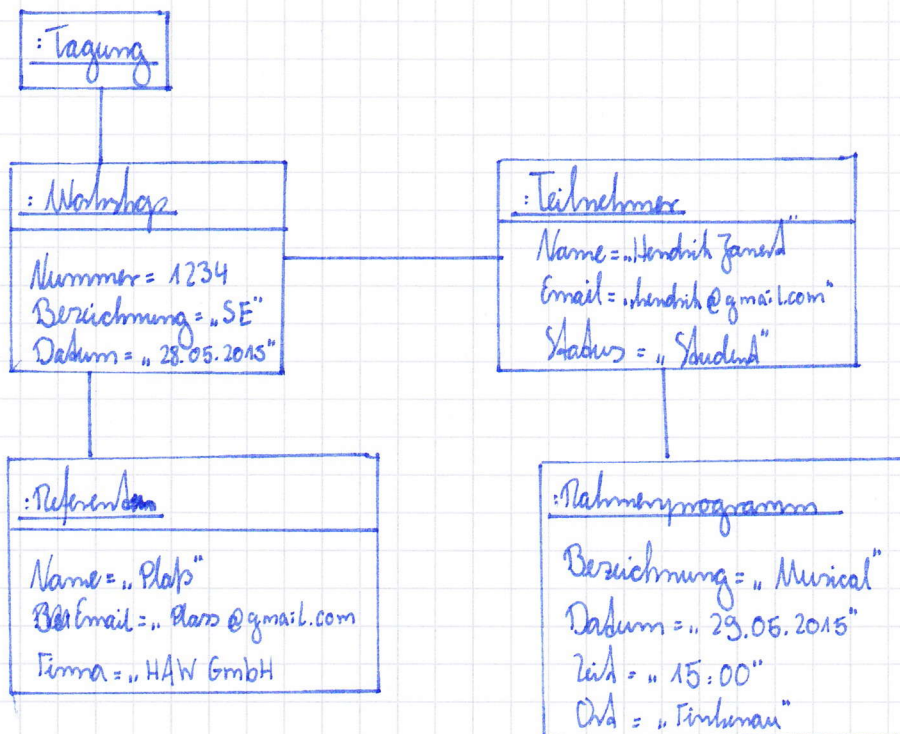 :Tagung
:Workshop
Nummer = 1234
Bezeichnung = „SE"
Datum = „28.05.2015"
:Teilnehmer
Name = „Hendrik
Email = „hendrik@gmail.com"
Status = „Student"
:Referent
Name = „Plaß"
Email = „Plass@gmail.com
Firma = „HAW GmbH
:Rahmenprogramm
Bezeichnung = „Musical"
Datum = „29.05.2015"
Zeit = „15:00"
Ort = „Finkenau"